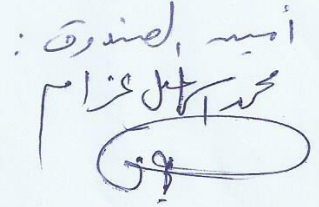 أمين الصندوق :
محمد اسماعيل عزام